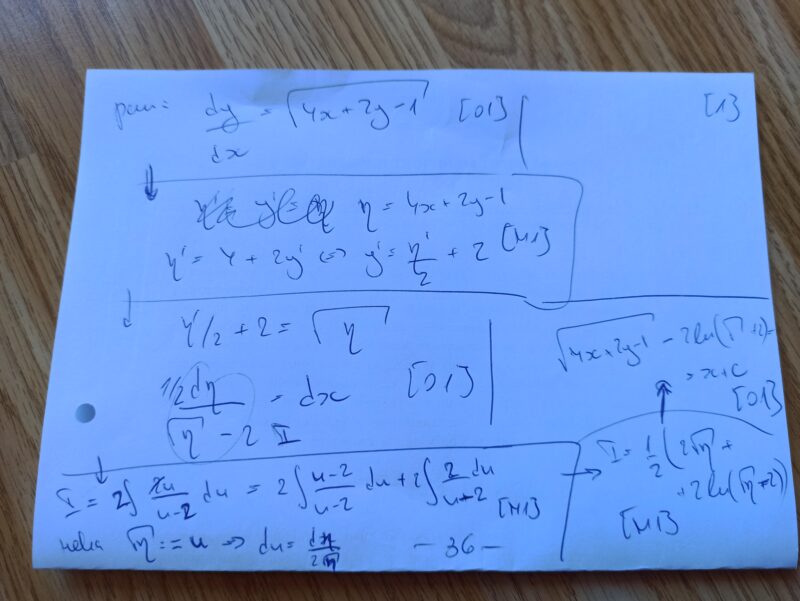 реш: dy/dx = √(4x+2y-1) [D1]
[1]
η = 4x+2y-1
η' = 4 + 2y' ⇔ y' = η'/2 + 2 [M1]
η'/2 + 2 = √η
(1/2 dη)/(√η - 2) = dx [D1]
I
I = 2∫ 2u/(u-2) du = 2∫ (u-2)/(u-2) du + 2∫ 2 du/(u+2)
[M1]
нека √η := u ⇒ du = dη/(2√η)
→ I = 1/2 (2√η +
+2 ln(√η+2))
[M1]
√(4x+2y-1) - 2 ln(√ +2) =
= x+c
[D1]
- 36 -